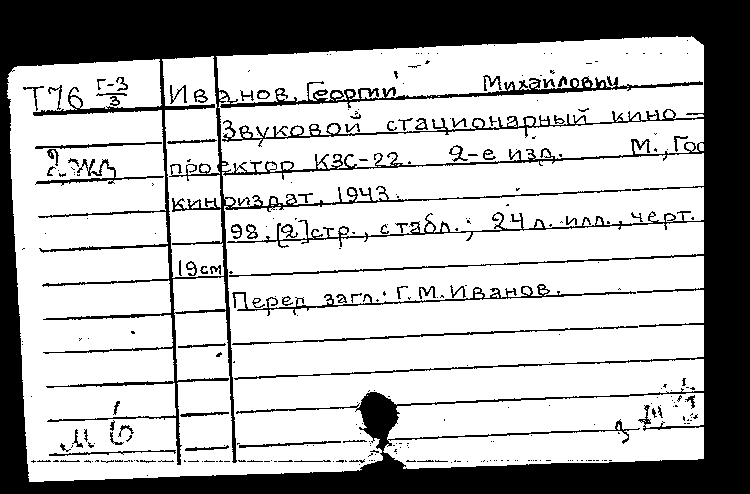 Т76 Г-3/3 Иванов, Георгий Михайлович,
Звуковой стационарный кино-
проектор КЗС-22. 2-е изд. М., Гос
киноиздат, 1943.
98, [2] стр., с табл.; 24 л. илл., черт.
19 см.
Перед загл.: Г.М. Иванов.
м 6